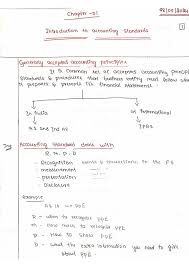 Chapter -01
Introduction to accounting standards
1
Generally accepted accounting principles
It is common set of accepted accounting principles
standards & procedures that business entity must follow when
it prepares & presents its financial statements
In India
at International
AS and Ind AS
IFRS
Accounting standard deals with
R, m, p, D
- Recognition
- measurement
- presentation
- Disclosure
example
AS 10 → PPE
R - when to recognise PPE
m - How much to recognise PPE
P - How to show PPE
D - what the extra information you need to give
about PPE